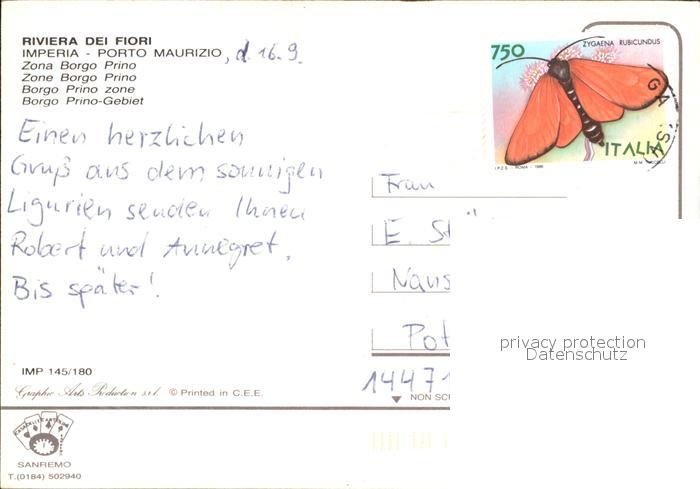 RIVIERA DEI FIORI
IMPERIA - PORTO MAURIZIO, d. 16.9.
Zona Borgo Prino
Zone Borgo Prino
Borgo Prino zone
Borgo Prino-Gebiet
Einen herzlichen
Gruß aus dem sonnigen
Ligurien senden Ihnen
Robert und Annegret.
Bis später!
IMP 145/180
Graphic Arts Production s.r.l. © Printed in C.E.E.
SANREMO
T.(0184) 502940
750
ZYGAENA RUBICUNDUS
ITALIA
I.P.Z.S. - ROMA - 1996
Frau
E. St
Naus
Pot
14471
NON SC
privacy protection
Datenschutz